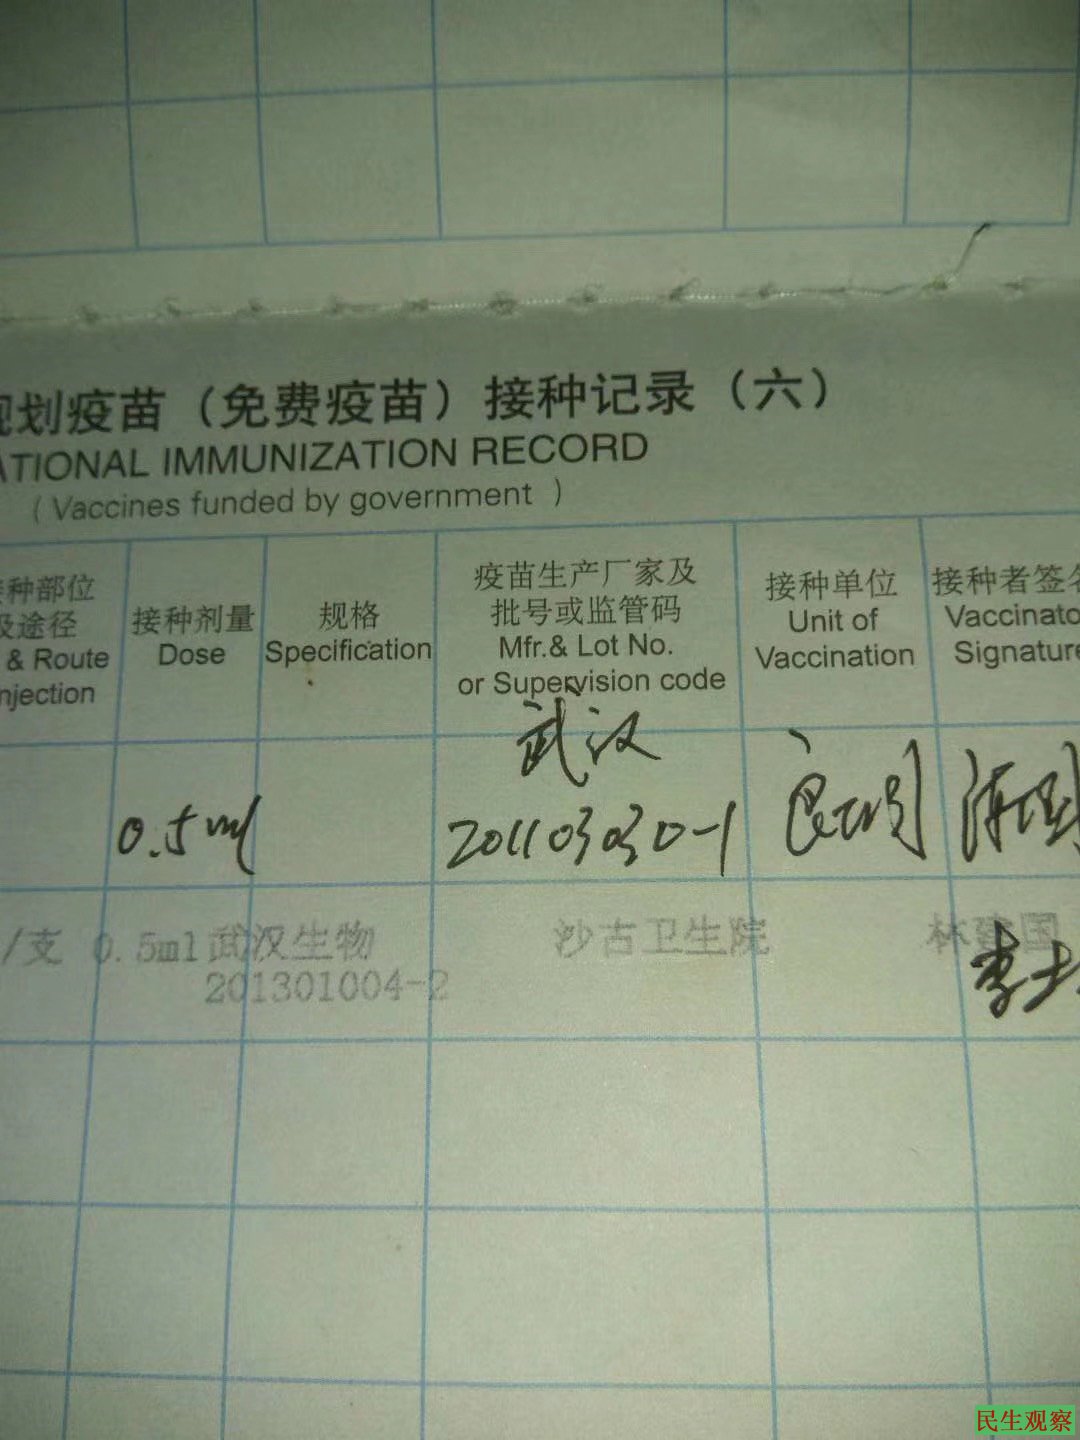 划疫苗（免费疫苗）接种记录（六）
ATIONAL IMMUNIZATION RECORD
( Vaccines funded by government )
种部位
途径
& Route
njection
接种剂量
Dose
规格
Specification
疫苗生产厂家及
批号或监管码
Mfr.& Lot No.
or Supervision code
接种单位
Unit of
Vaccination
接种者签名
Vaccinato
Signature
0.5ml
武汉
20110303 0-1
/支 0.5ml 武汉生物
201301004-2
沙古卫生院
林建国
民生观察